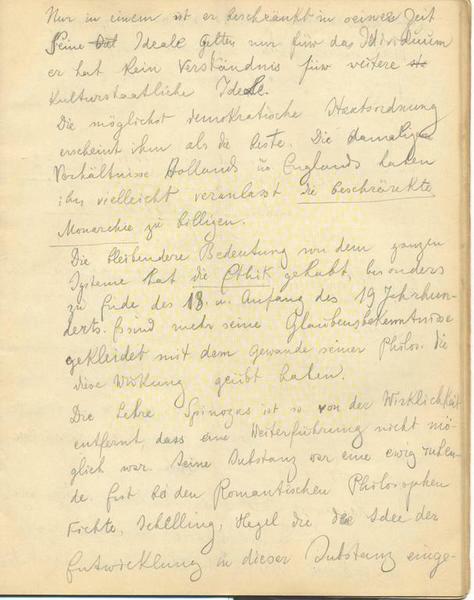 Nur in einem ist er beschränkt in seiner Zeit
Seine Ideale gelten nur für das Individuum
er hat kein Verständnis für weitere
kulturstaatliche Ideale.
Die möglichst demokratische Staatsordnung
erscheint ihm als die beste. Die damaligen
Verhältnisse Hollands u Englands haben
ihn vielleicht veranlasst die beschränkte
Monarchie zu billigen.
Die bleibendere Bedeutung von dem ganzen
Systeme hat die Ethik gehabt, besonders
zu Ende des 18. u. Anfang des 19 Jahrhun-
derts. Es sind mehr seine Glaubensbekenntnisse
gekleidet mit dem Gewande seiner Philos. die
diese Wirkung geübt haben.
Die Lehre Spinozas ist so von der Wirklichkeit
entfernt, dass eine Weiterführung nicht mö-
glich war. Seine Substanz war eine ewig ruhen-
de. Erst bei den Romantischen Philosophen
Fichte, Schelling, Hegel die die Idee der
Entwicklung in dieser Substanz einge-